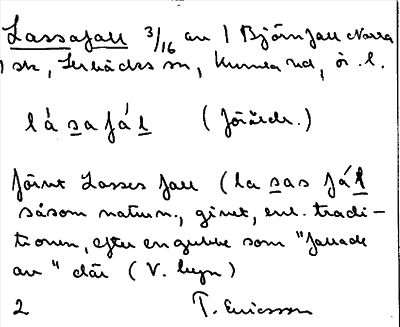 Lassafall 3/16 av 1 Björnfall Norra
1 sk, Lerbäcks sn, Kumla hd, ör. l.
lá sa fá l (föråldr.)
förut Lasses fall (la sas fá l
såsom naturn., givet, enl. tradi-
tionen, efter en gubbe som "fallade
av" där (V. begn)
2 T. Ericsson